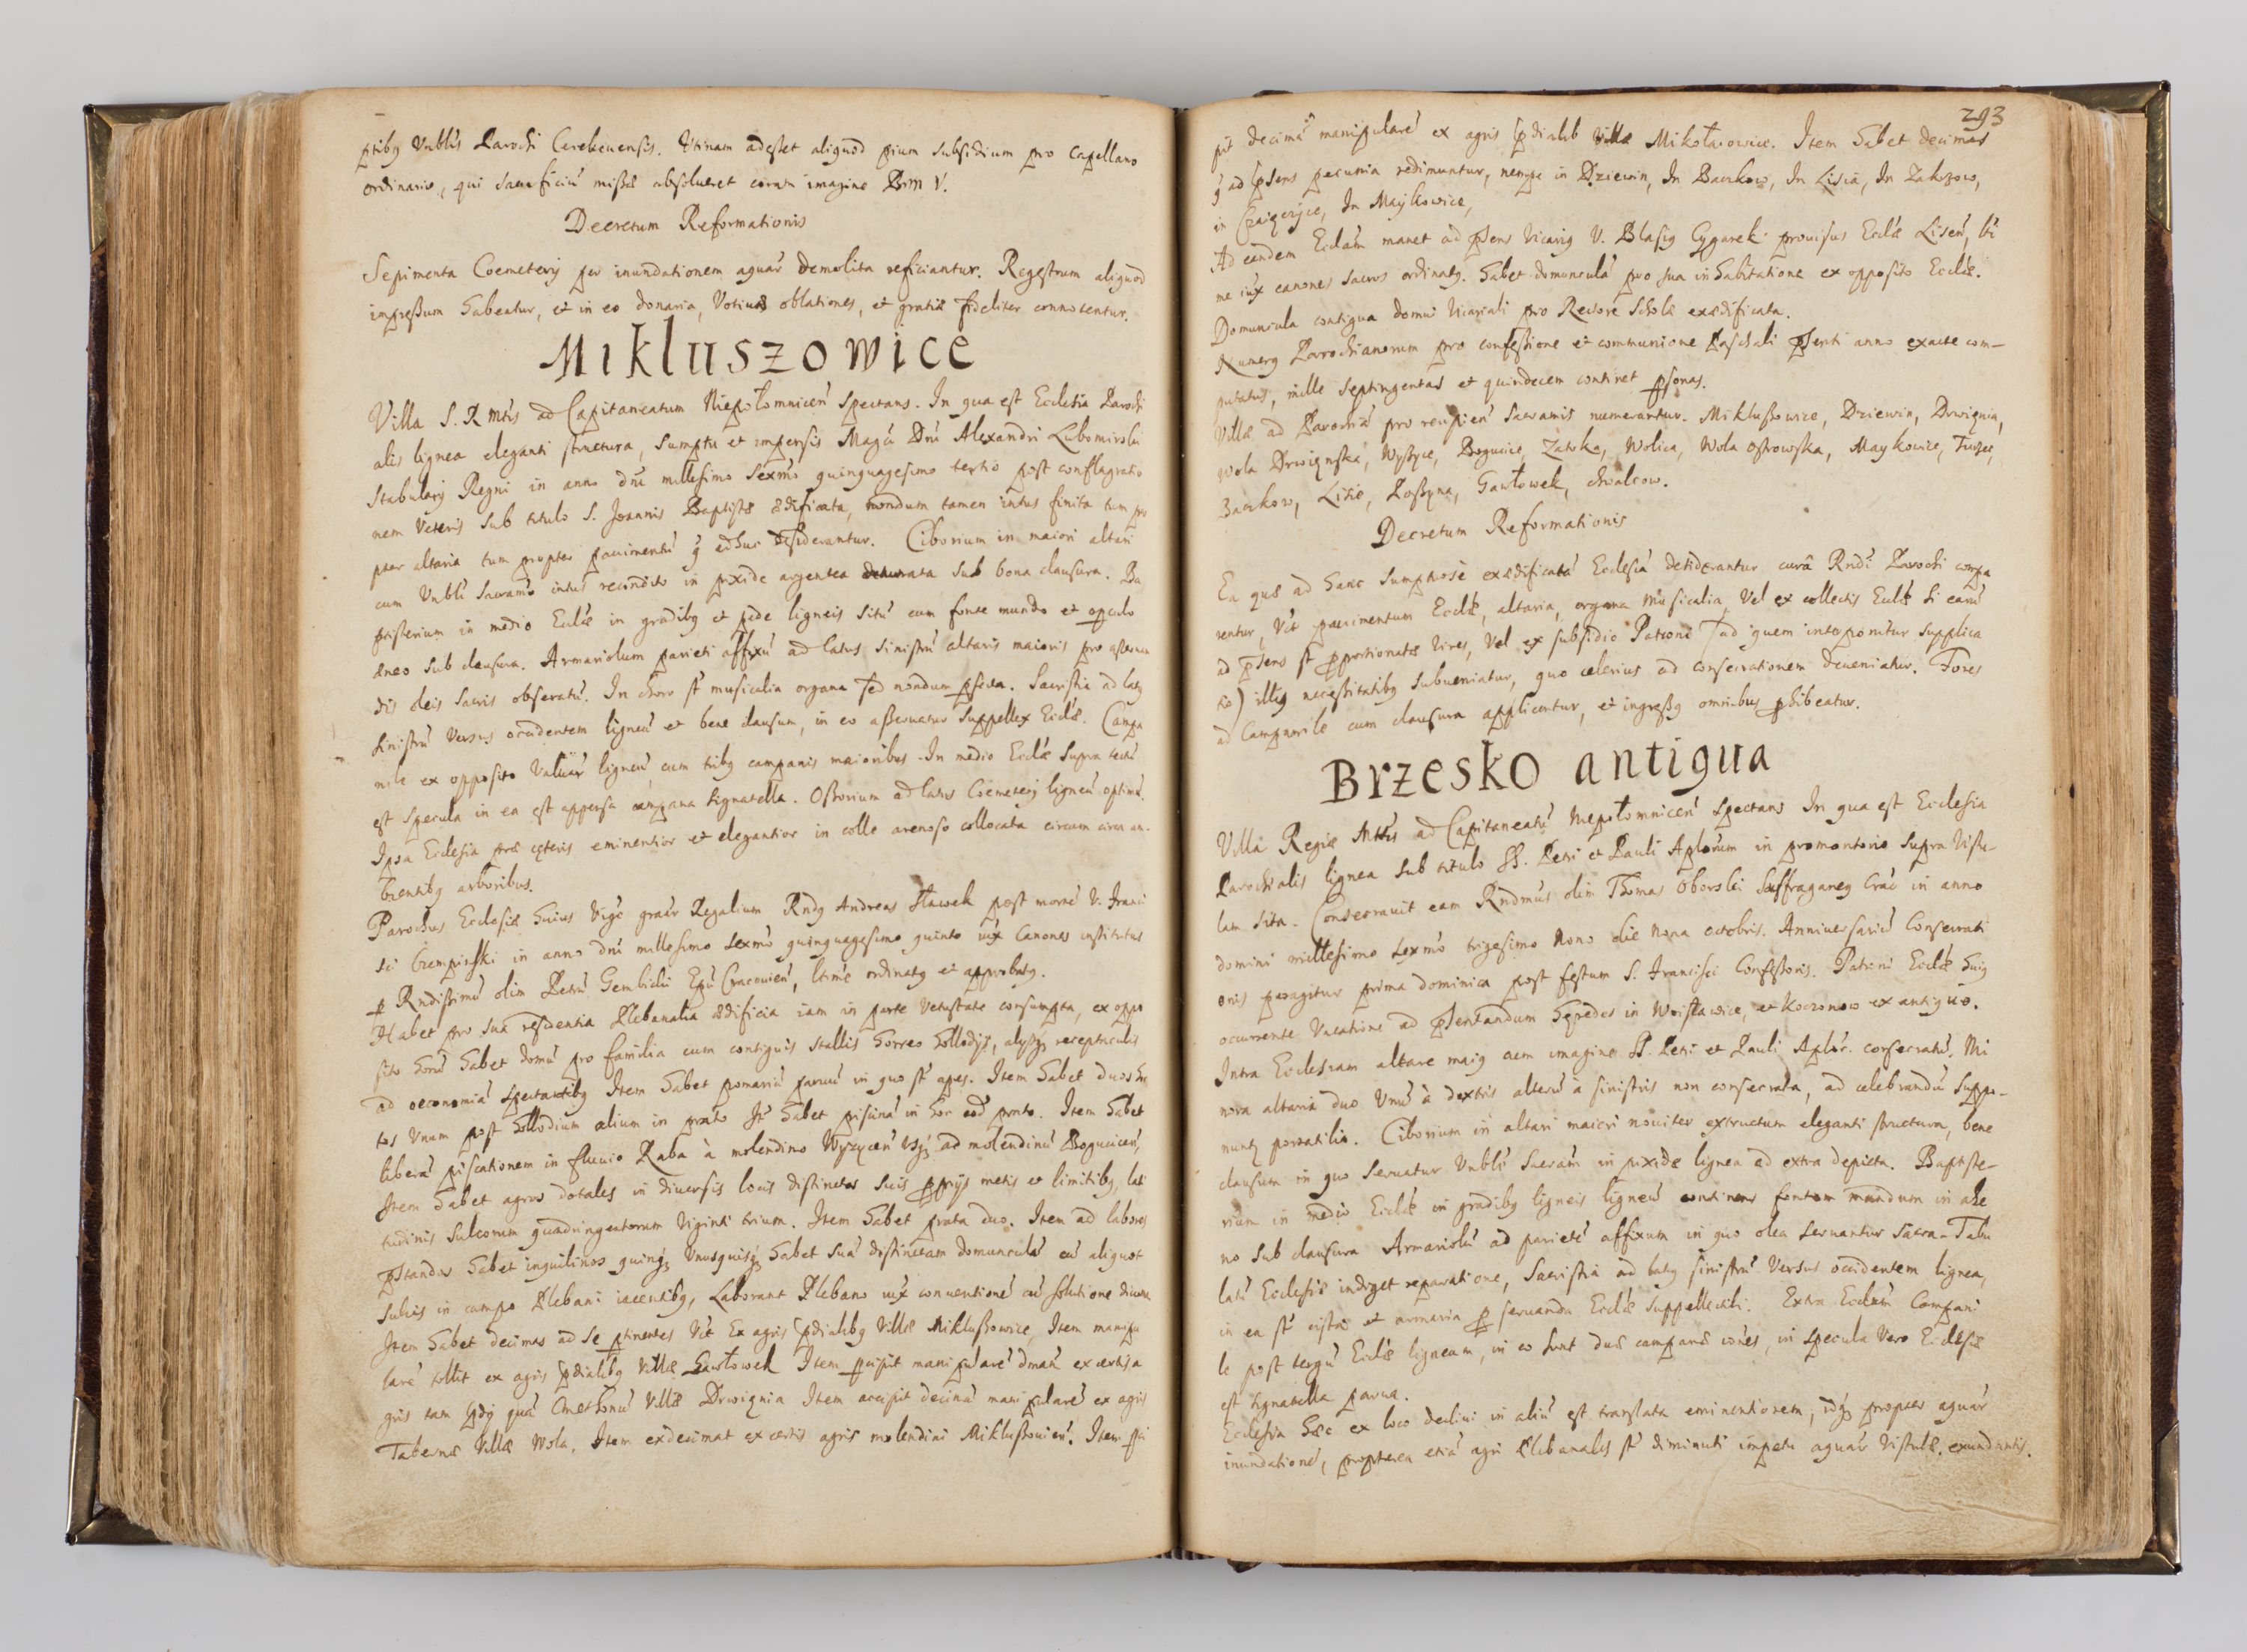 ptibq Vnblis Parochi Cerekeuensis. Vtinam adesset aliquod pium subsidium pro Capellano
ordinario, qui sacrificiũ missæ absolueret coram imagine Bm V.
Decretum Reformationis
Sepimenta Coemeterij per inundationem aquar̃ demolita reficiantur. Regestrum aliquod
impressum habeatur, et in eo donaria, Votiuæ oblationes, et gratiæ fideliter connotentur.
Mikluszowice
Villa S. R. Mtis ad Capitaneatum Niepołomnicen̄ spectans. In qua est Ecclesia Parochi
alis lignea eleganti structura, sumptu et impensis Magci Dni Alexandri Lubomirski
Stabularij Regni in anno dni millesimo sexmo quinquagesimo tertio post conflagratio
nem Veteris sub titulo S. Joannis Baptistæ ædificata, nondum tamen intus finita tum pro
pter altaria tum propter pauimentũ q̃ adhuc desiderantur. Ciborium in maiori altari
cum Vnbli Sacramo intus recondito in pixide argentea deaurata sub bona clausura. Ba
ptisterium in medio Eccliæ in gradibq et pede ligneis sitũ cum fonte mundo et opculo
æneo sub clausura. Armariolum parieti affixũ ad latus sinistrũ altaris maioris pro asseruan
dis oleis sacris obseratũ. In choro st̃ musicalia organa sed nondum pfecta. Sacristia ad latq
sinistrũ versus occidentem ligneũ et bene clausum, in eo asseruatur suppellex Eccliæ. Campa
nile ex opposito Valuar̃ ligneũ cum tribq campanis maioribus. In medio Eccliæ supra tectũ
est specula in ea est appensa campana signatella. Ossorium ad latus Coemeterij ligneũ optimũ.
Ipsa Ecclesia præ cæteris eminentior et elegantior in colle arenoso collocata circum circa am-
bientibq arboribus.
Parochus Ecclesiæ huius Vige graar̃ Regalium Rndq Andreas Sławek post mortẽ V. Franci
sci Czempinski in anno dni millesimo sexmo quinquagesimo quinto iux̃ Canones institutus
p Rndissimũ olim Petrũ Gembicki Epũ Cracouien̄, ltime ordinatq et approbatq.
Habet pro sua residentia Plebanalia ædificia iam in parte Vetustate consumpta, ex oppo
sito horũ habet domũ pro familia cum contiguis stallis horreo hollodijs, alijsq receptaculis
ad oeconomiã spectantibq Item habet pomariũ paruũ in quo st̃ apes. Item habet duos hor
tos Vnum post hollodium alium in prato It̃ habet piscinã in hoc eod̃ prato. Item habet
liberã piscationem in fluuio Raba à molendino Wyzycen̄ Vsq ad molendinũ Bogucicen̄,
Item habet agros dotales in diuersis locis distinctos suis pprijs metis et limitibq, lati
tudinis sulcorum quadringentorum Viginti trium. Item habet prata duo. Item ad labores
pstandos habet inquilinos quinq Vnusquisq habet suã distinctam domunculã cũ aliquot
sulcis in campo Plebani iacentibq, Laborant Plebano iux̃ conuentionẽ cũ solutione
Item habet decimas ad se ptinentes Vit Ex agris pdialibq Villæ Miklussowice, Item manipu
larẽ tollit ex agris pdialibq Villæ Gawłowek Item pcipit manipularẽ dmam̃ ex certis a
gris tam pdij quã Cmethonũ Villæ Drwiqnia Item accipit decimã manipularẽ ex agris
Tabernæ Villæ Wola. Item exdecimat ex certis agris molendini Miklussouien̄. Item pci
293
pit decimã manipularẽ ex agris pdialib Villæ Mikołaiowice. Item habet decimas
q̃ ad psens pecunia redimuntur, nempe in Dziewin, In Baczkow, In Lisia, In Zakrzow,
in Czaiqczyce, In Maykowice,
Ad eandem Ecclam̃ manet ad psens Vicariq V. Blasiq Cyganek prouisus Eccliæ Lisen̄, lti
me iux̃ canones sacros ordinatq. habet domunculã pro sua inhabitatione ex opposito Eccliæ.
Domuncula contigua domui Vicariali pro Rectore Scholæ exædificata.
Numerq Parochianorum pro confessione et communione Paschali psenti anno exacte com-
putatus, mille septingentas et quindecem continet psonas.
Villæ ad Parochiã pro recipien̄ Sacramtis numerantur. Miklussowice, Dziewin, Drwiqnia,
Wola Drwiqnska, Wyssyce, Bogucice, Zatoka, Wolica, Wola Ostrowska, Maykowice,
Baczkow, Lisie, Possyna, Gawłowek, chwalcow.
Decretum Reformationis
Ea quæ ad hanc sumptuosè exædificatã Ecclesiã desiderantur curâ Rndi Parochi compa
rentur, Vit pauimentum Eccliæ, altaria, organa Musicalia, Vel ex collectis Eccliæ si earũ
ad psens st̃ pportionatæ Vires, Vel ex subsidio Patroni (ad quem interponitur supplica
tio) illiq necessitatibq subueniatur, quo celerius ad consecrationem deueniatur. Fores
ad Campanile cum clausura applicentur, et ingressq omnibus phibeatur.
Brzesko antiqua
Villa Regiæ Mttis ad Capitaneatũ Niepołomnicen̄ spectans In qua est Ecclesia
Parochialis lignea sub titulo SS. Petri et Pauli Aplorum in promontorio supra Vistu-
lam sita. Consecrauit eam Rndmus olim Thomas Oborski Suffraganeq Crac̄ in anno
domini millesimo sexmo trigesimo Nono die nona octobris. Anniuersariũ Consecrati
onis peragitur prima dominica post festum S. Francisci Confessoris. Patroni Eccliæ huiq
occurrente Vacatione ad psentandum hæredes in Woisławice, et Koczonow ex antiquo.
Intra Ecclesiam altare maiq cum imagine SS. Petri et Pauli Aplor̃. consecratũ. Mi
nora altaria duo Vnũ à dextris alterũ à sinistris non consecrata, ad celebrandũ suppo-
nuntq portatilia. Ciborium in altari maiori nouiter extructum eleganti structura, bene
clausum in quo seruatur Vnbli Sacram̃ in pixide lignea ad extra depicta. Baptiste-
rium in medio Eccliæ in gradibq ligneis ligneũ continens fontem mundum in ahe
no sub clausura Armariolũ ad parietẽ affixum in quo olea seruantur sacra. Tabu
latũ Ecclesiæ indiget reparatione, Sacristia ad latq sinistrũ Versus occidentem lignea,
in ea st̃ cistæ et armaria p seruanda Eccliæ suppellectili. Extra Ecclam̃ Campani
le post tergũ Eccliæ ligneum, in eo sunt duæ campanæ cões, in specula Vero Ecclesiæ
est signatella parua.
Ecclesia hæc ex loco decliui in aliũ est translata eminentiorem, idq propter aquar̃
inundationẽ, propterea etiã agri Plebanales st̃ diminuti impetu aquar̃ Vistulæ exundantis.